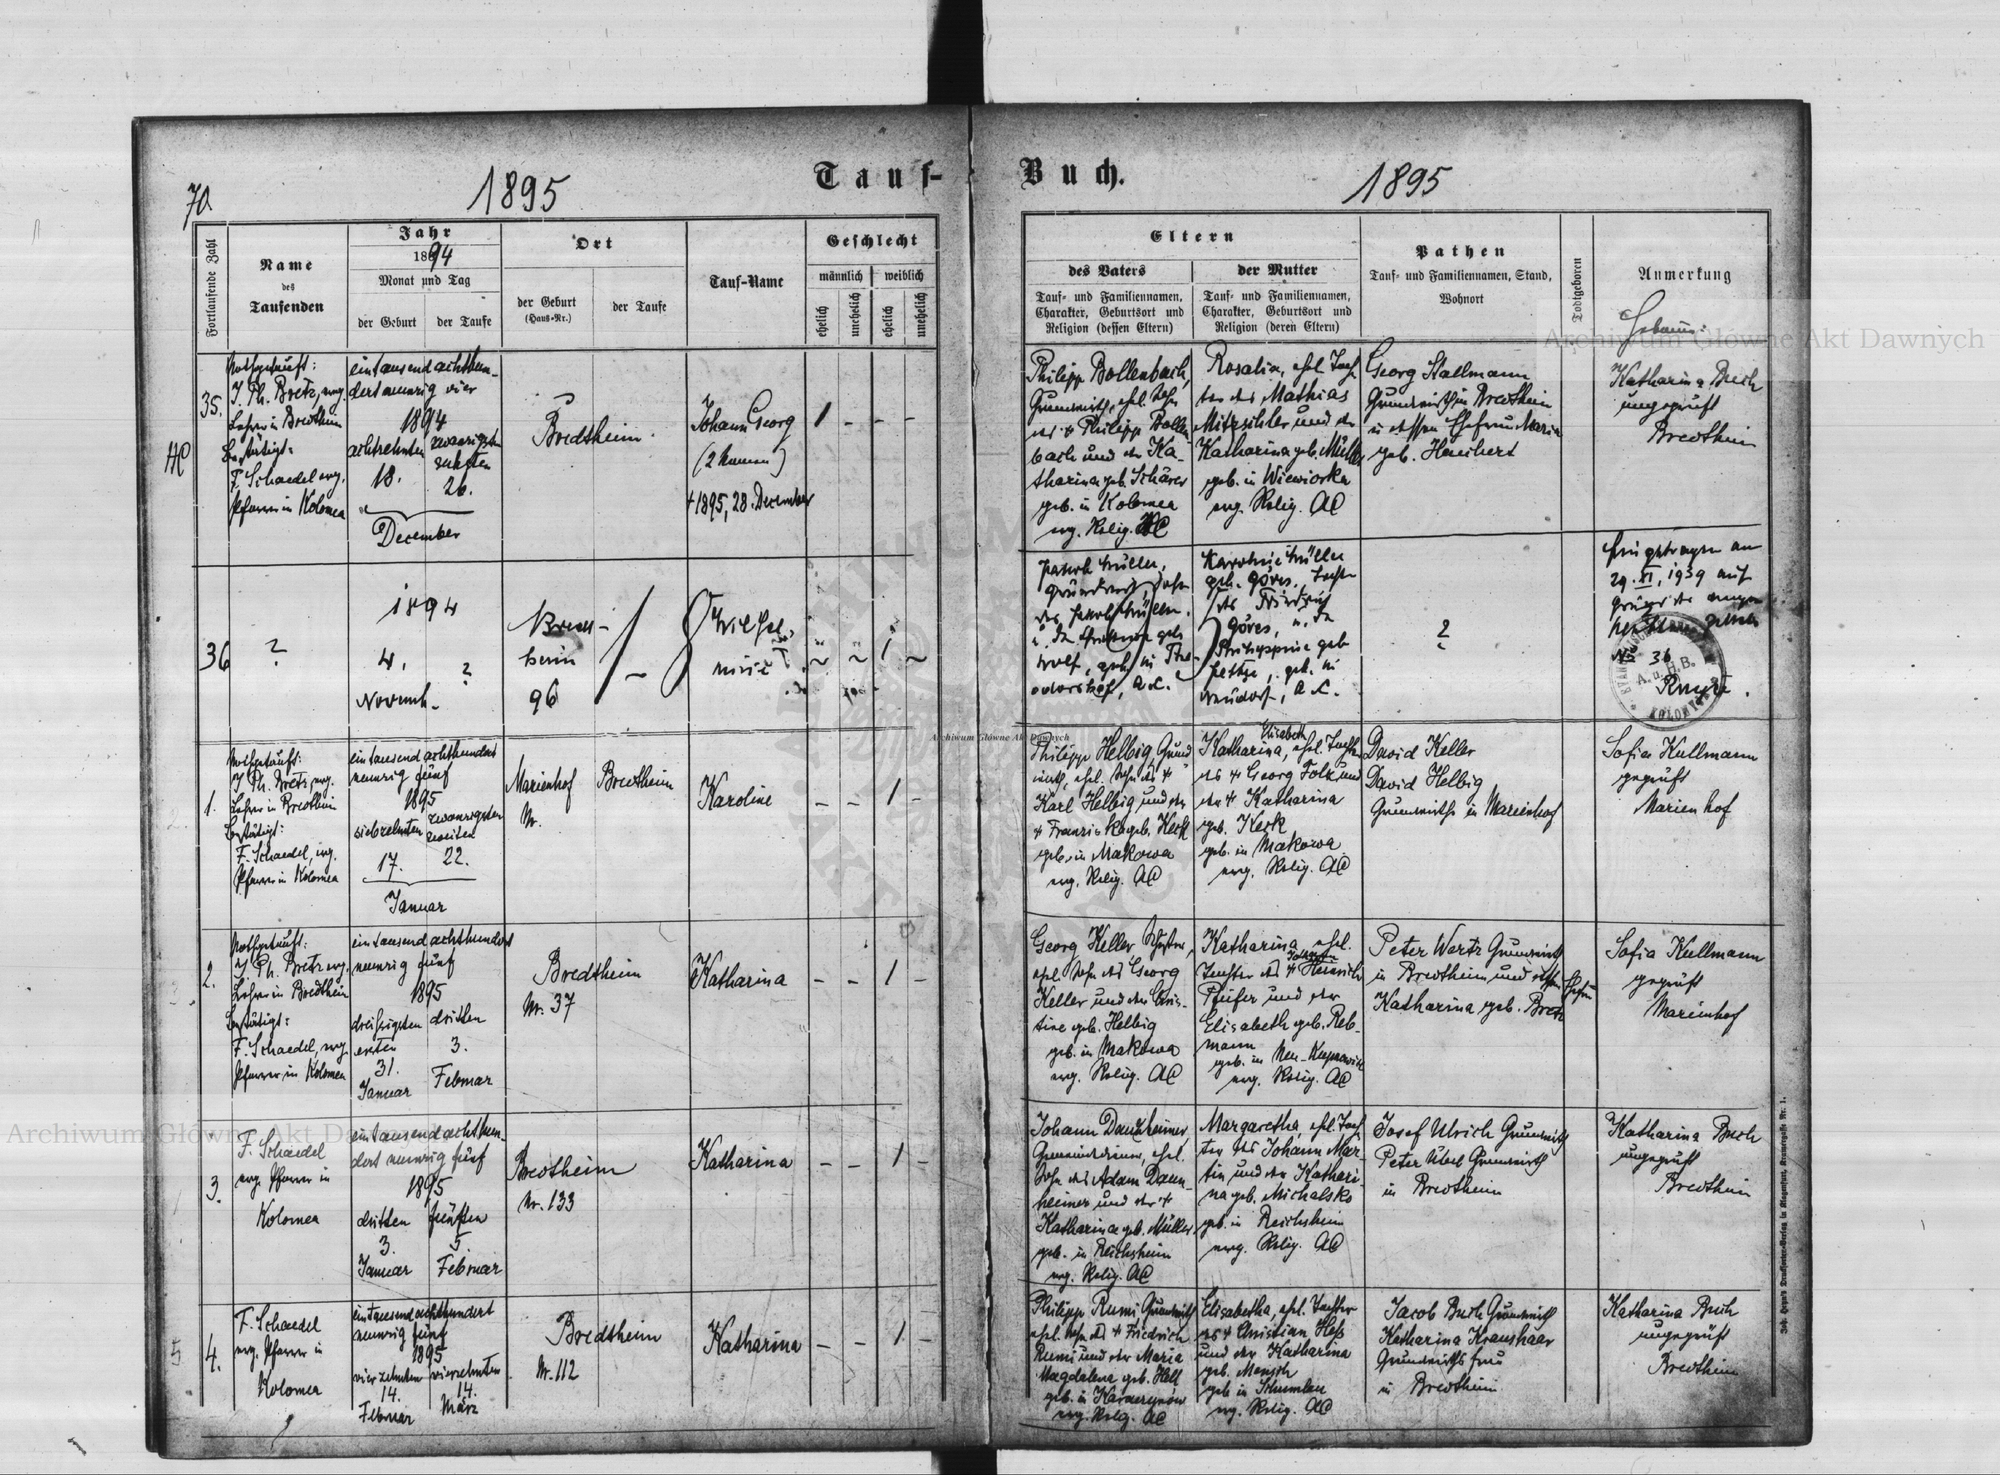 70.
1895
Tauf-
Buch.
1895
Fortlaufende Zahl
Name
des
Taufenden
Jahr
1894
Monat und Tag
der Geburt
der Taufe
Ort
der Geburt
(Haus-Nr.)
der Taufe
Tauf-Name
Geschlecht
männlich
weiblich
ehelich
unehelich
ehelich
unehelich
Eltern
des Vaters
Tauf- und Familiennamen,
Charakter, Geburtsort und
Religion (dessen Eltern)
der Mutter
Tauf- und Familiennamen,
Charakter, Geburtsort und
Religion (deren Eltern)
Pathen
Tauf- und Familiennamen, Stand,
Wohnort
Todtgeboren
Anmerkung
Hebamme:
35.
Nothgetauft:
J. Ph. Bretz, evg.
Lehrer in Bredtheim
Bestätigt:
F. Schaedel evg.
Pfarrer in Kolomea
eintausend achthun-
dert neunzig vier
1894
achtzehnten zwanzigsten
sechsten
18. 26.
December
Bredtheim
Johann Georg
+ 1895, 28. December
1 - - -
Philipp Bollenbach,
Grundwirth, ehel. Sohn
des + Philipp Bollen
bach und der Ka-
tharina geb. Schärer
geb. in Kolomea
evg. Relig. AC
Rosalia, ehel. Toch
ter des Mathias
und der
Katharina geb. Müller
geb. in Wiewiorka
evg. Relig. AC
Georg Stallmann
Grundwirth in Bredtheim
u. dessen Ehefrau Maria
geb. Hauchert
Katharina Buch
ungeprüft
Bredtheim
36
?
1894
4. ?
Novemb.
Bredt-
heim
96
Wilhel-
mine
~ ~ 1 ~
Jakob Müller,
Grundwirt, Sohn
des Jakob Müller
Wolf, geb. in The-
odorshof, A.C.
Karoline Müller
geb. Göres, Tochter
des Friedrich
Göres, u. da
Philippine geb
geb. in
Neudorf, A.C.
?
Eingetragen am
29. XI. 1939 auf
36
A. u. H. B.
1.
Nothgetauft:
J. Ph. Bretz, evg.
Lehrer in Bredtheim
Bestätigt:
F. Schaedel, evg.
Pfarrer in Kolomea
eintausend achthundert
neunzig fünf
1895
siebzehnten zwanzigsten
zweiten
17. 22.
Januar
Marienhof
Nr.
Bredtheim
Karoline
- - 1 -
Philipp Helbig, Grund
wirth, ehel. Sohn des +
Karl Helbig und der
+ Franziska geb. Kerk
geb. in Makowa
evg. Relig. AC
Elisabeth
Katharina, ehel. Tochter
des + Georg Folz und
der + Katharina
geb. Kerk
geb. in Makowa
evg. Relig. AC
David Keller
David Helbig
Grundwirthe in Marienhof
Sofia Kullmann
geprüft
Marienhof
2.
Nothgetauft:
J. Ph. Bretz evg.
Lehrer in Bredtheim
Bestätigt:
F. Schaedel, evg.
Pfarrer in Kolomea
eintausend achthundert
neunzig fünf
1895
dreißigsten dritten
ersten 3.
31.
Januar Februar
Bredtheim
Nr. 37
Katharina
- - 1 -
Georg Keller
ehel. Sohn des Georg
Keller und der Chris-
tine geb. Helbig
geb. in Makowa
evg. Relig. AC
Katharina, ehel.
Tochter des + Heinrich
Pfeifer und der
Elisabeth geb. Reb-
mann
geb. in Neu-Kupnowice
evg. Relig. AC
Peter Wertz Grundwirth
in Bredtheim und dessen Ehefrau
Katharina geb. Bretz
Sofia Kullmann
geprüft
Marienhof
3.
F. Schaedel
evg. Pfarrer in
Kolomea
eintausend achthun-
dert neunzig fünf
1895
dritten fünften
3. 5
Januar Februar
Bredtheim
Nr. 133
Katharina
- - 1 -
Johann Dannheimer,
Gemeindediener, ehel.
Sohn des Adam Dann-
heimer und der +
Katharina geb. Müller,
geb. in Reichsheim
evg. Relig. AC
Margaretha, ehel. Toch
ter des Johann Mar-
tin und der Kathari-
na geb. Michalsko
geb. in Reichsheim
evg. Relig. AC
Josef Ulrich Grundwirth
Peter Übel Grundwirth
in Bredtheim
Katharina Buch
ungeprüft
Bredtheim
4.
F. Schaedel
evg. Pfarrer in
Kolomea
eintausend achthundert
neunzig fünf
1895
vierzehnten vierzehnten
14. 14.
Februar März
Bredtheim
Nr. 112
Katharina
- - 1 -
Philipp Rumi Grundwirth
ehel. Sohn des + Friedrich
Rumi und der Maria
Magdalena geb. Hell
evg. Relig. AC
Elisabetha, ehel. Tochter
des + Christian Heß
und der Katharina
geb. Mensch
evg. Relig. AC
Jacob Buch Grundwirth
Katharina Kraushaar
Grundwirths frau
in Bredtheim
Katharina Buch
ungeprüft
Bredtheim
Archiwum Główne Akt Dawnych
Archiwum Główne Akt Dawnych
Archiwum Główne Akt Dawnych